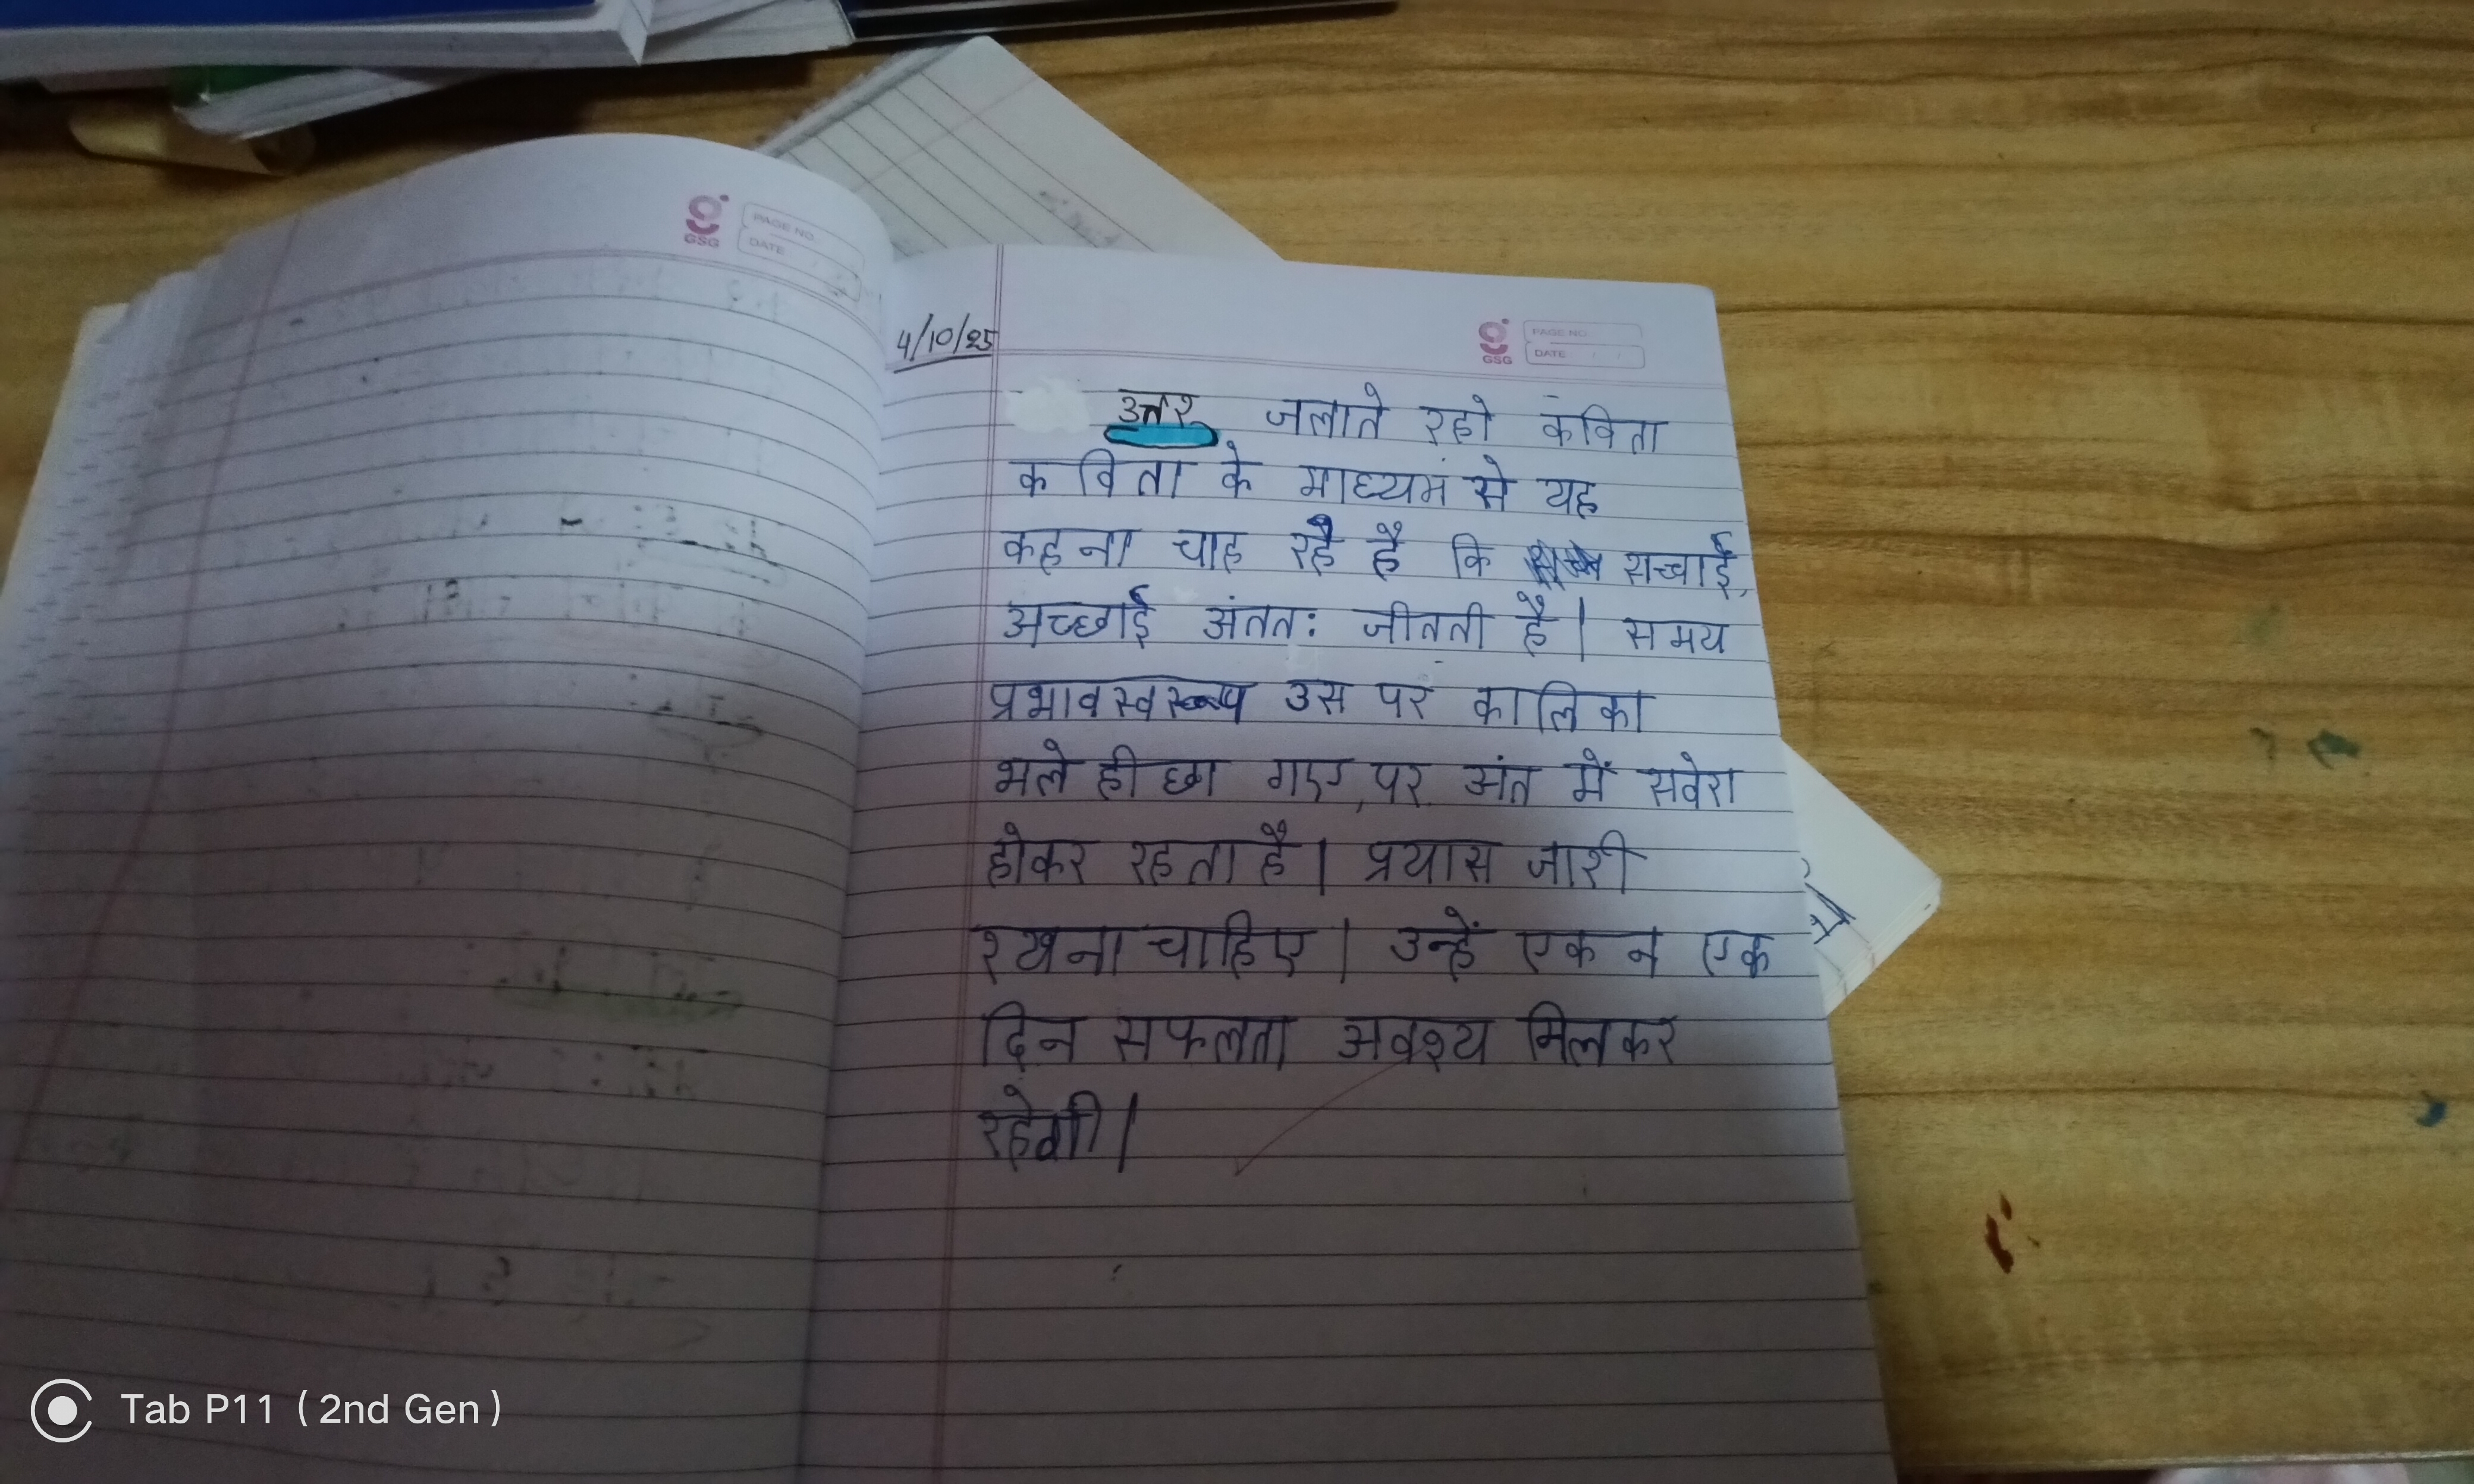 GSG
PAGE NO.
DATE
4/10/25
GSG
PAGE NO.
DATE
उत्तर जलाते रहो कविता
कविता के माध्यम से यह
कहना चाह रहे है कि सच्चाई,
अच्छाई अंततः जीतती है। समय
प्रभावस्वरूप उस पर कालिका
भले ही छा गए, पर अंत में सवेरा
होकर रहता है। प्रयास जारी
रखना चाहिए। उन्हें एक न एक
दिन सफलता अवश्य मिलकर
रहेगी।
Tab P11 (2nd Gen)